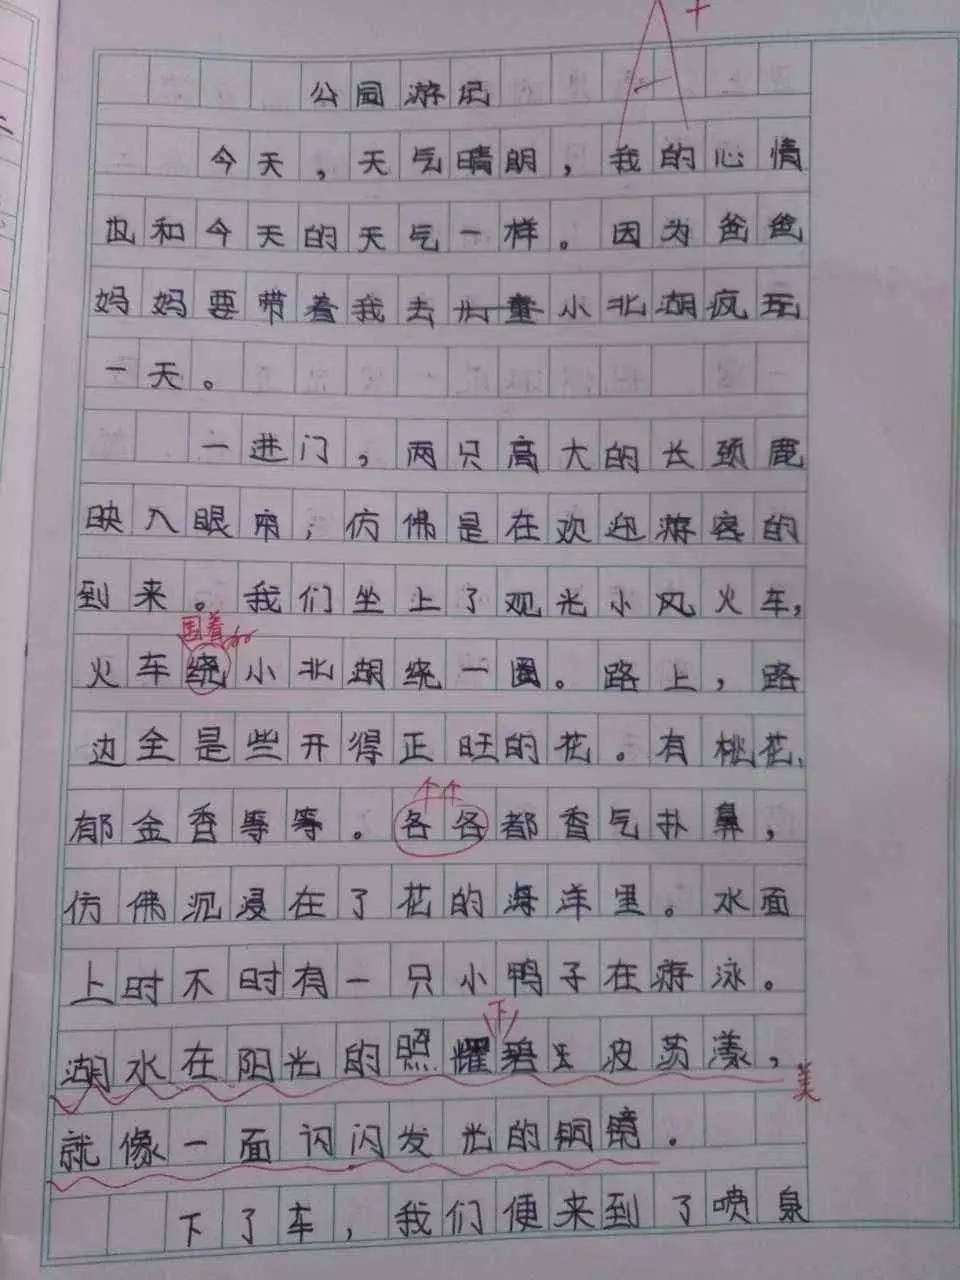 A+
公园游记
今天，天气晴朗，我的心情
也和今天的天气一样。因为爸爸
妈妈要带着我去北童小北湖疯玩
一天。
一进门，两只高大的长颈鹿
映入眼帘，仿佛是在欢迎游客的
到来。我们坐上了观光小风火车，
围着
火车绕小北湖绕一圈。路上，路
边全是些开得正旺的花。有桃花，
个个
郁金香等等。各各都香气扑鼻，
仿佛沉浸在了花的海洋里。水面
上时不时有一只小鸭子在游泳。
下
湖水在阳光的照耀碧玉波荡漾，
美
就像一面闪闪发光的铜镜。
下了车，我们便来到了喷泉